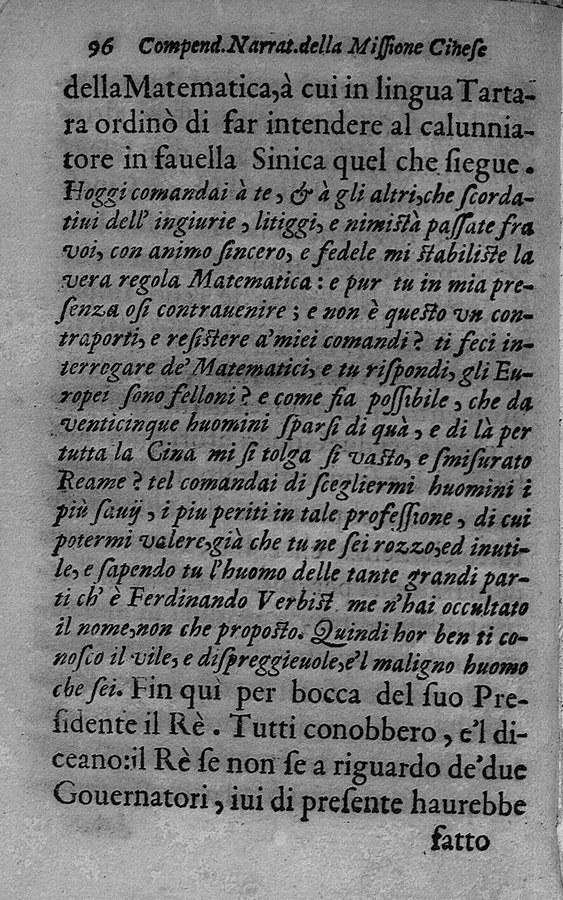 96 Compend.Narrat.della Miſſione Cineſe
della Matematica,à cui in lingua Tarta-
ra ordinò di far intendere al calunnia-
tore in fauella Sinica quel che ſiegue.
Hoggi comandai à te, & à gli altri,che ſcorda-
tiui dell' ingiurie, litiggi, e nimiſtà paſſate fra
voi, con animo ſincero, e fedele mi ſtabiliſte la
vera regola Matematica: e pur tu in mia pre-
ſenza oſi contrauenire; e non è queſto vn con-
traporti, e reſiſtere a'miei comandi? ti feci in-
terrogare de' Matematici, e tu riſpondi, gli Eu-
ropei ſono felloni? e come ſia poſſibile, che da
venticinque huomini ſparſi di quà, e di là per
tutta la Cina mi ſi tolga ſi vaſto, e ſmiſurato
Reame? tel comandai di ſcegliermi huomini i
più ſauij, i piu periti in tale profeſſione, di cui
potermi valere,già che tu ne ſei rozzo,ed inuti-
le, e ſapendo tu l'huomo delle tante grandi par-
ti ch' è Ferdinando Verbiſt me n'hai occultato
il nome,non che propoſto. Quindi hor ben ti co-
noſco il vile, e diſpreggieuole,e'l maligno huomo
che ſei. Fin quì per bocca del ſuo Pre-
ſidente il Rè. Tutti conobbero, e'l di-
ceano:il Rè ſe non ſe a riguardo de'due
Gouernatori, iui di preſente haurebbe
fatto